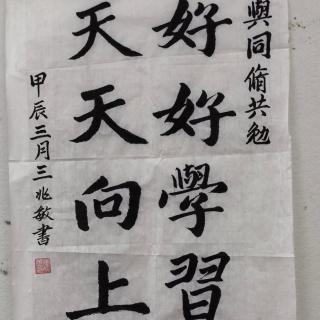 與同脩共勉
好好學習
天天向上
甲辰三月三兆敏書